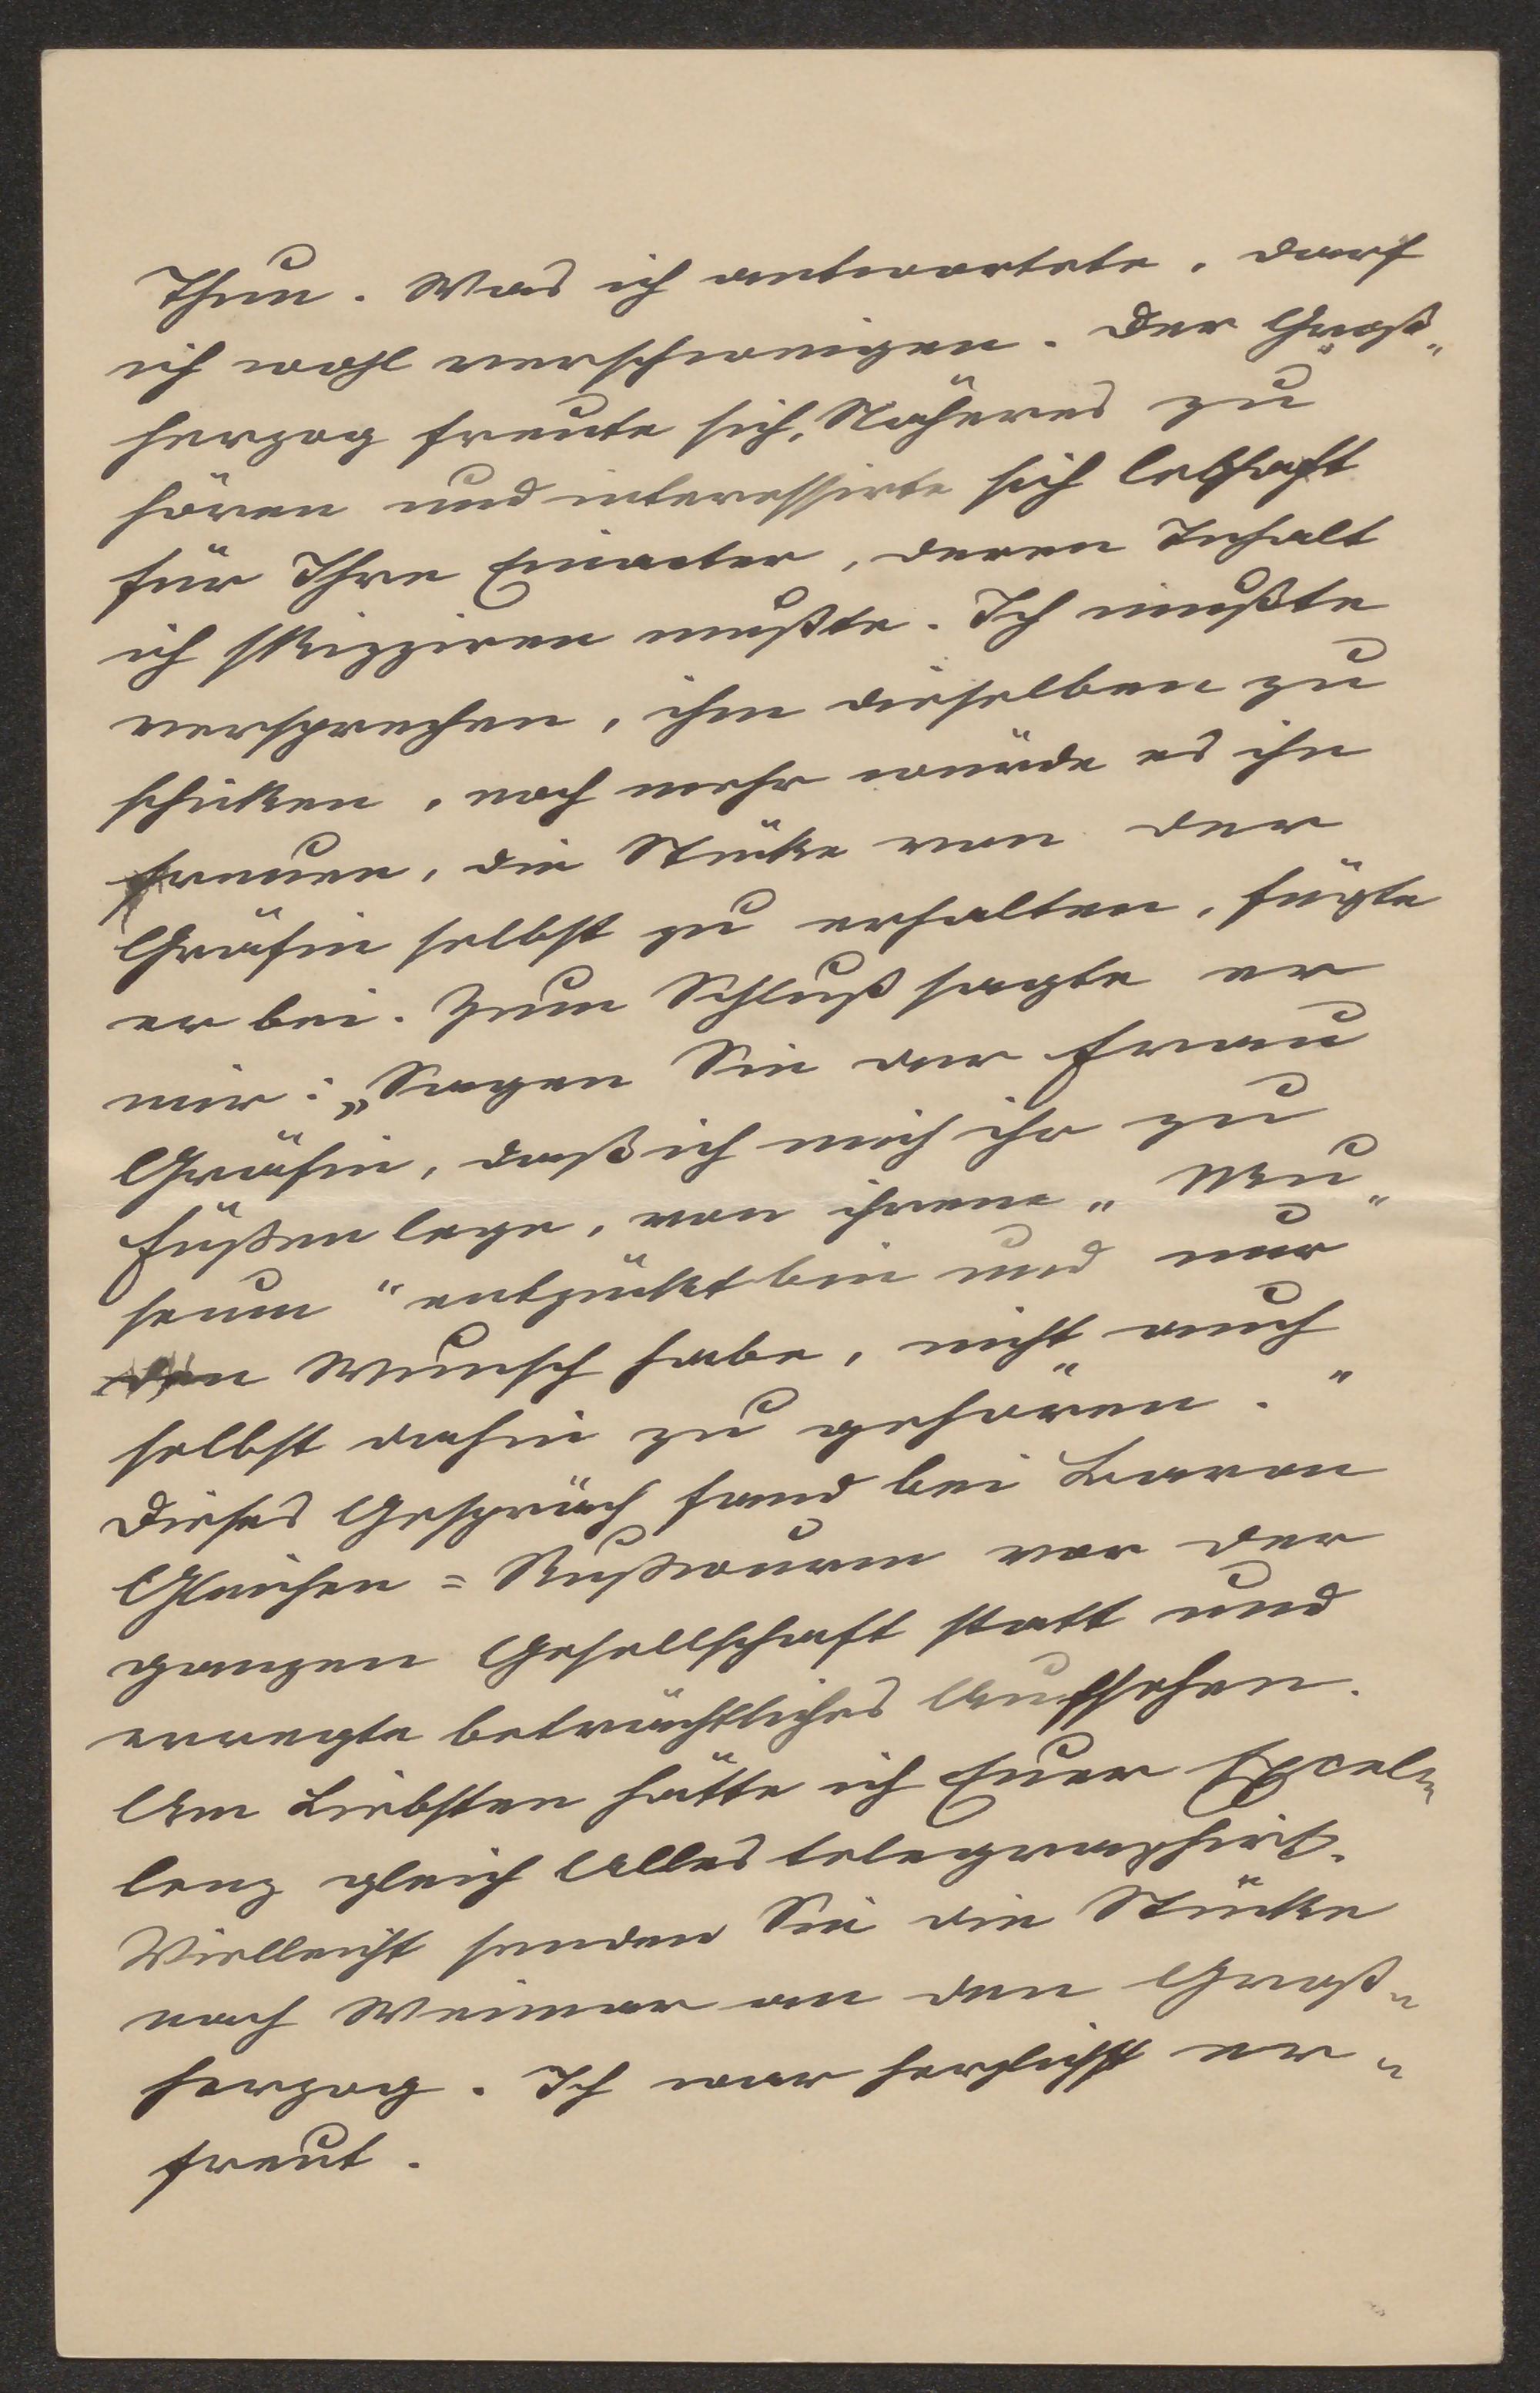 Thun. Was ich antwortete, darf
ich wohl verschweigen. Der Groß„
herzog freute sich, Näheres zu
hören und interessirte sich lebhaft
für Ihre Einacter, deren Inhalt
ich skizziren mußte. Ich mußte
versprechen, ihm dieselben zu
schicken, noch mehr würde es ihn
freuen, die Stücke von der
Gräfin selbst zu erhalten, fügte
er bei. Zum Schluß sagte er
mir: „Sagen Sie der Frau
Gräfin, daß ich mich ihr zu
Füßen lege, von ihrem „Mu„
seum“ entzückt bin und nur
den Wunsch habe, nicht auch
selbst dahin zu gehören.“
Dieses Gespräch fand bei Baron
Gleichen=Rußwurm vor der
ganzen Gesellschaft statt und
erregte beträchtliches Aufsehen.
Am Liebsten hätte ich Euer Excel„
lenz gleich Alles telegraphirt.
Vielleicht senden Sie die Stücke
nach Weimar an den Groß„
herzog. Ich war herzlichst er„
freut.